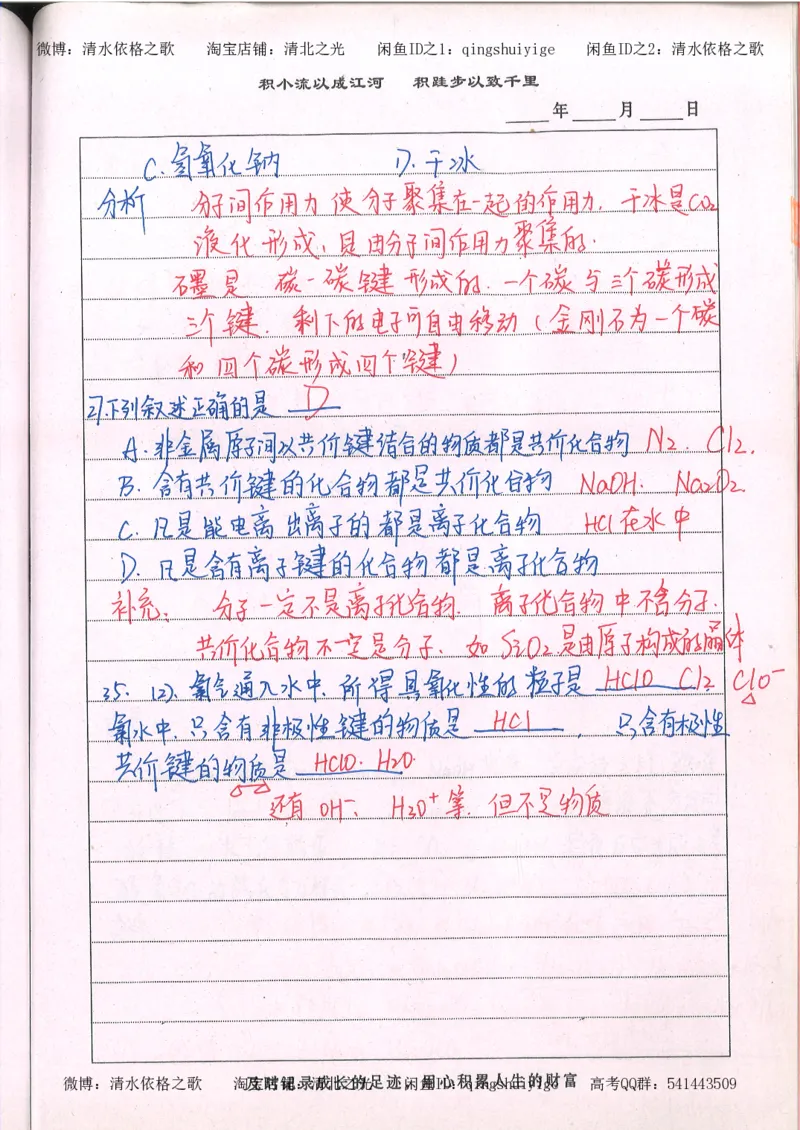 微博：清水依格之歌 淘宝店铺：清北之光 闲鱼ID之1：qingshuiyige 闲鱼ID之2：清水依格之歌
积小流以成江河 积跬步以致千里
____年____月____日
C. 氢氧化钠 D. 干冰
分析 分子间作用力使分子聚集在一起的作用力. 干冰是CO₂
液化形成, 是由分子间作用力聚集的.
石墨是 碳-碳键形成的. 一个碳与三个碳形成
三个键. 剩下的电子可自由移动(金刚石为一个碳
和四个碳形成四个键)
2)下列叙述正确的是 D
A. 非金属原子间以共价键结合的物质都是共价化合物 N₂. Cl₂.
B. 含有共价键的化合物都是共价化合物 NaOH. Na₂O₂.
C. 凡是能电离出离子的都是离子化合物 HCl在水中
D. 凡是含有离子键的化合物都是离子化合物
补充: 分子一定不是离子化合物. 离子化合物中不含分子.
共价化合物不一定是分子. 如SiO₂是由原子构成的晶体
35. (2). 氯气通入水中, 所得具氧化性的粒子是 HClO Cl₂. ClO⁻
氯水中, 只含有非极性键的物质是 HCl , 只含有极性
共价键的物质是 HClO. H₂O.
还有OH⁻、H₃O⁺等. 但不是物质
及时记录成长的足迹，用心积累人生的财富
微博：清水依格之歌 淘宝店铺：清北之光 闲鱼ID：qingshuiyige 高考QQ群：541443509